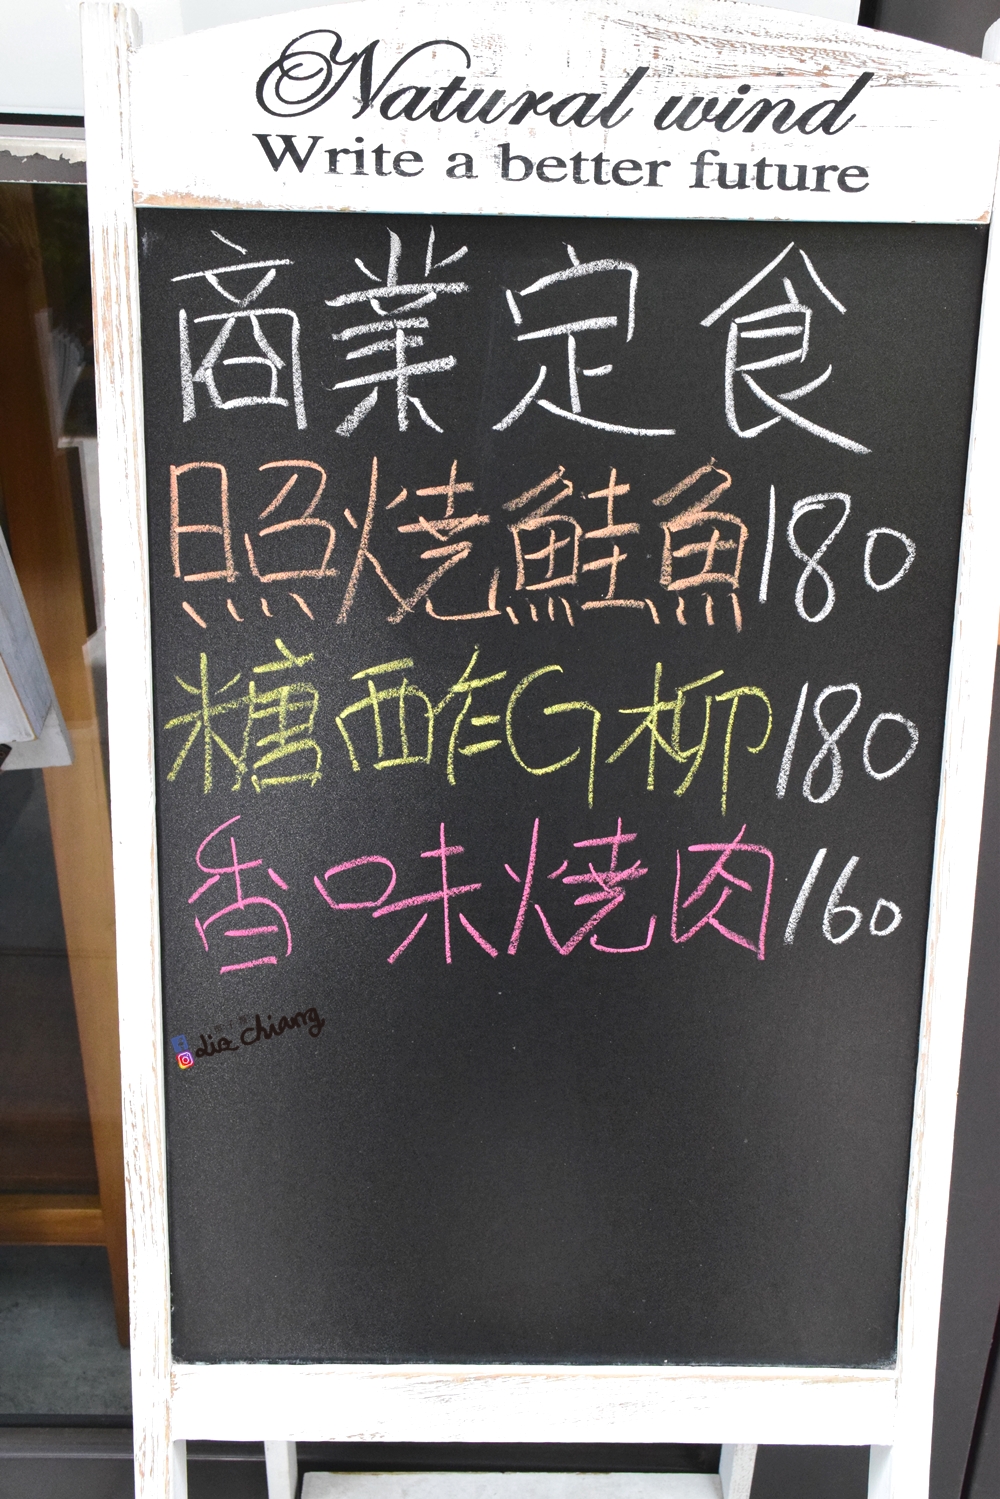 Natural wind
Write a better future
商業定食
照燒鮭魚180
糖酢G柳180
香味燒肉160
dia chiang